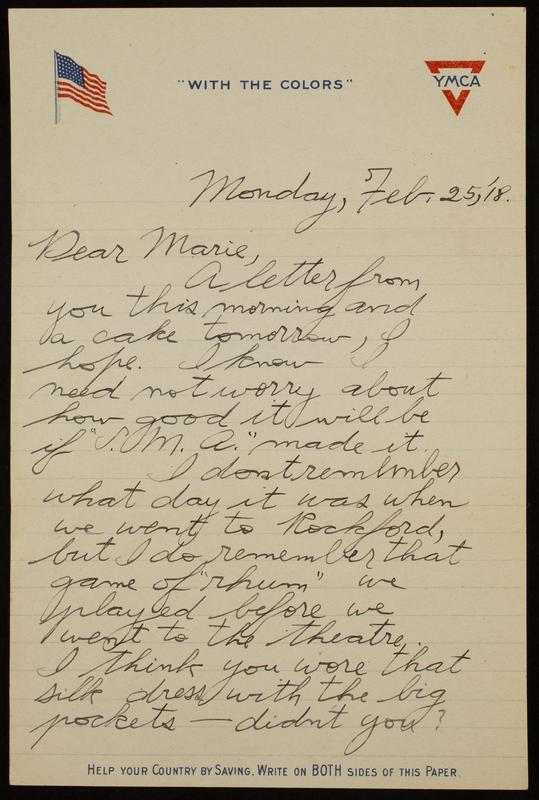 "WITH THE COLORS"
YMCA
Monday, Feb. 25, '18.
Dear Marie,
A letter from
you this morning and
a cake tomorrow, I
hope. I know I
need not worry about
how good it will be
if " M. A." made it.
I dont remember
what day it was when
we went to Rockford,
but I do remember that
game of "rhum" we
played before we
went to the theatre.
I think you wore that
silk dress with the big
pockets — didn't you?
HELP YOUR COUNTRY BY SAVING. WRITE ON BOTH SIDES OF THIS PAPER.